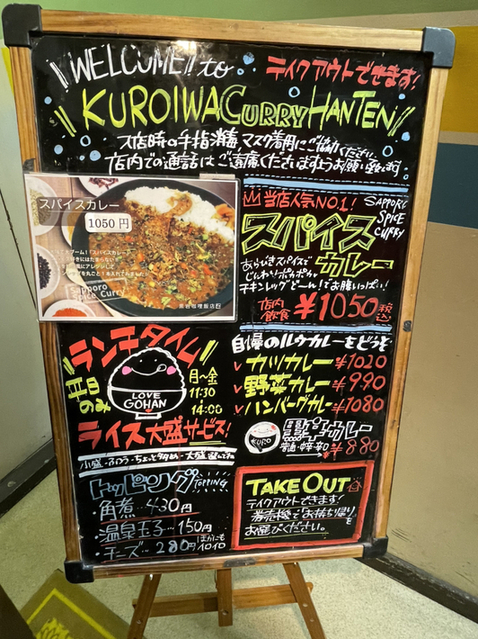 WELCOME!! to
テイクアウトできます!
KUROIWA CURRY HANTEN
入店時の手指消毒 マスク着用にご協力ください。
店内での通話はご遠慮くださいますようお願い致します
スパイスカレー
1050円
Sapporo
Spice Curry
当店人気NO.1!
SAPPORO SPICE CURRY
スパイス
カレー
あらびきスパイスで
じんわりポカポカ♪
チキンレッグどーん!でお腹いっぱい!
店内飲食 ¥1050 税込
ランチタイム
平日のみ
LOVE GOHAN
月~金
11:30
14:00
ライス大盛サービス!
小盛・ふつう・ちょっと多め・大盛
自慢のルウカレーをどうぞ
カツカレー ¥1020
野菜カレー ¥990
ハンバーグカレー ¥1080
KURO
¥880
トッピング TOPPING
角煮…430円
温泉玉子…150円
チーズ…280円
ほかにもイロイロ
TAKE OUT
テイクアウトできます!
券売機で「お持ち帰り」を
お選びください。